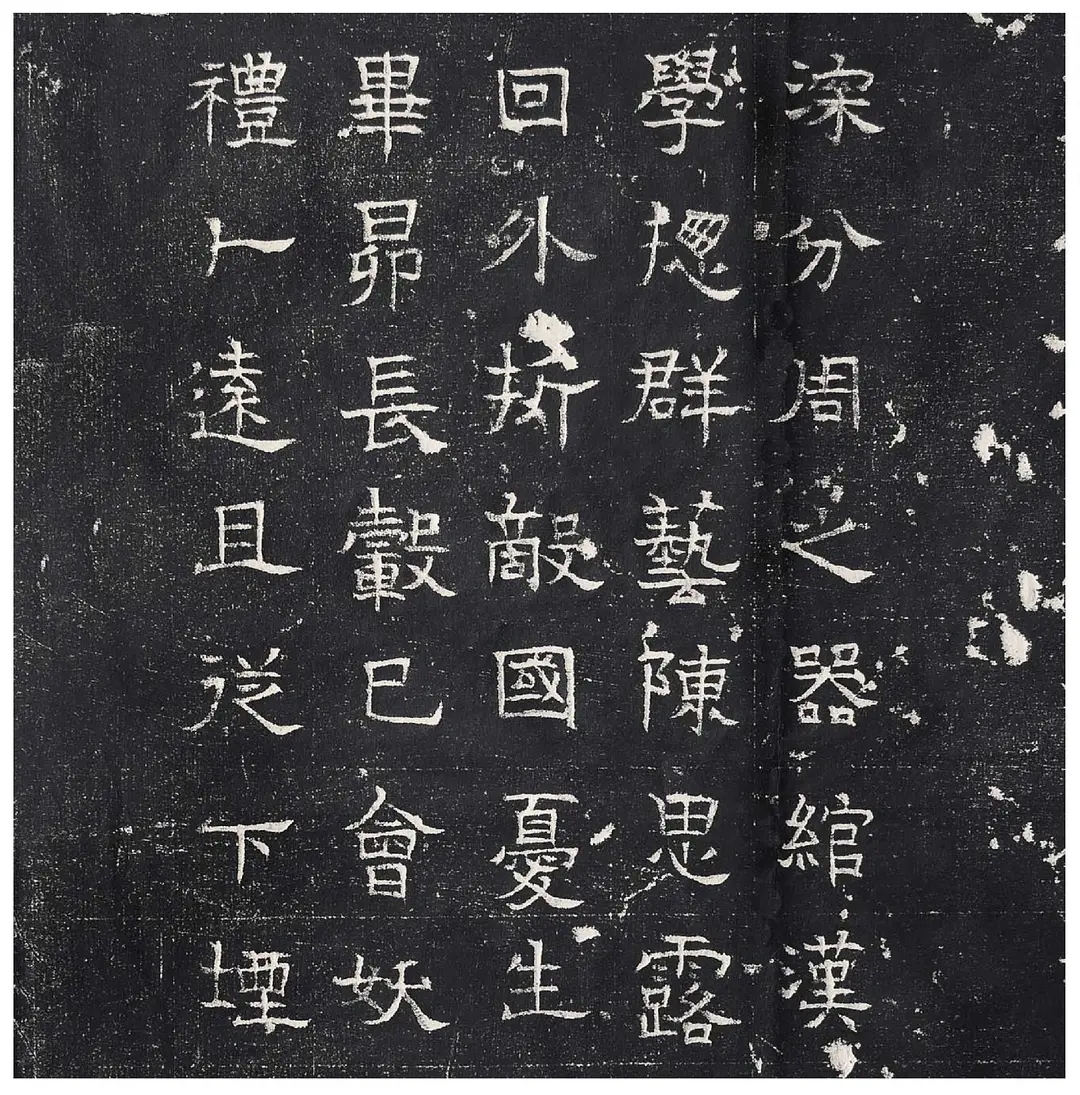 深分周之器綰漢
學揔群藝陳思露
回外折敵國憂生
畢昴長轂已會妖
禮卜遠且從下堙